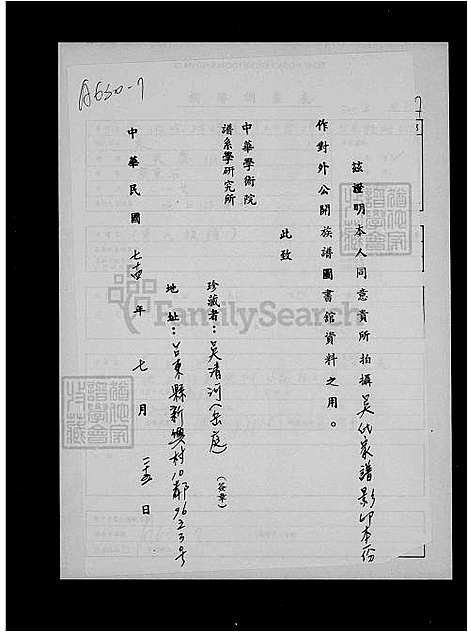 A650-7
茲證明本人同意貴所拍攝吳氏家譜影印本一份
作對外公開族譜圖書館資料之用。
此致
中華學術院
譜系學研究所
珍藏者：吳清河
(簽章)
地址：台東縣新興村10鄰96之3号
中華民國七十四年七月二十五日
FamilySearch